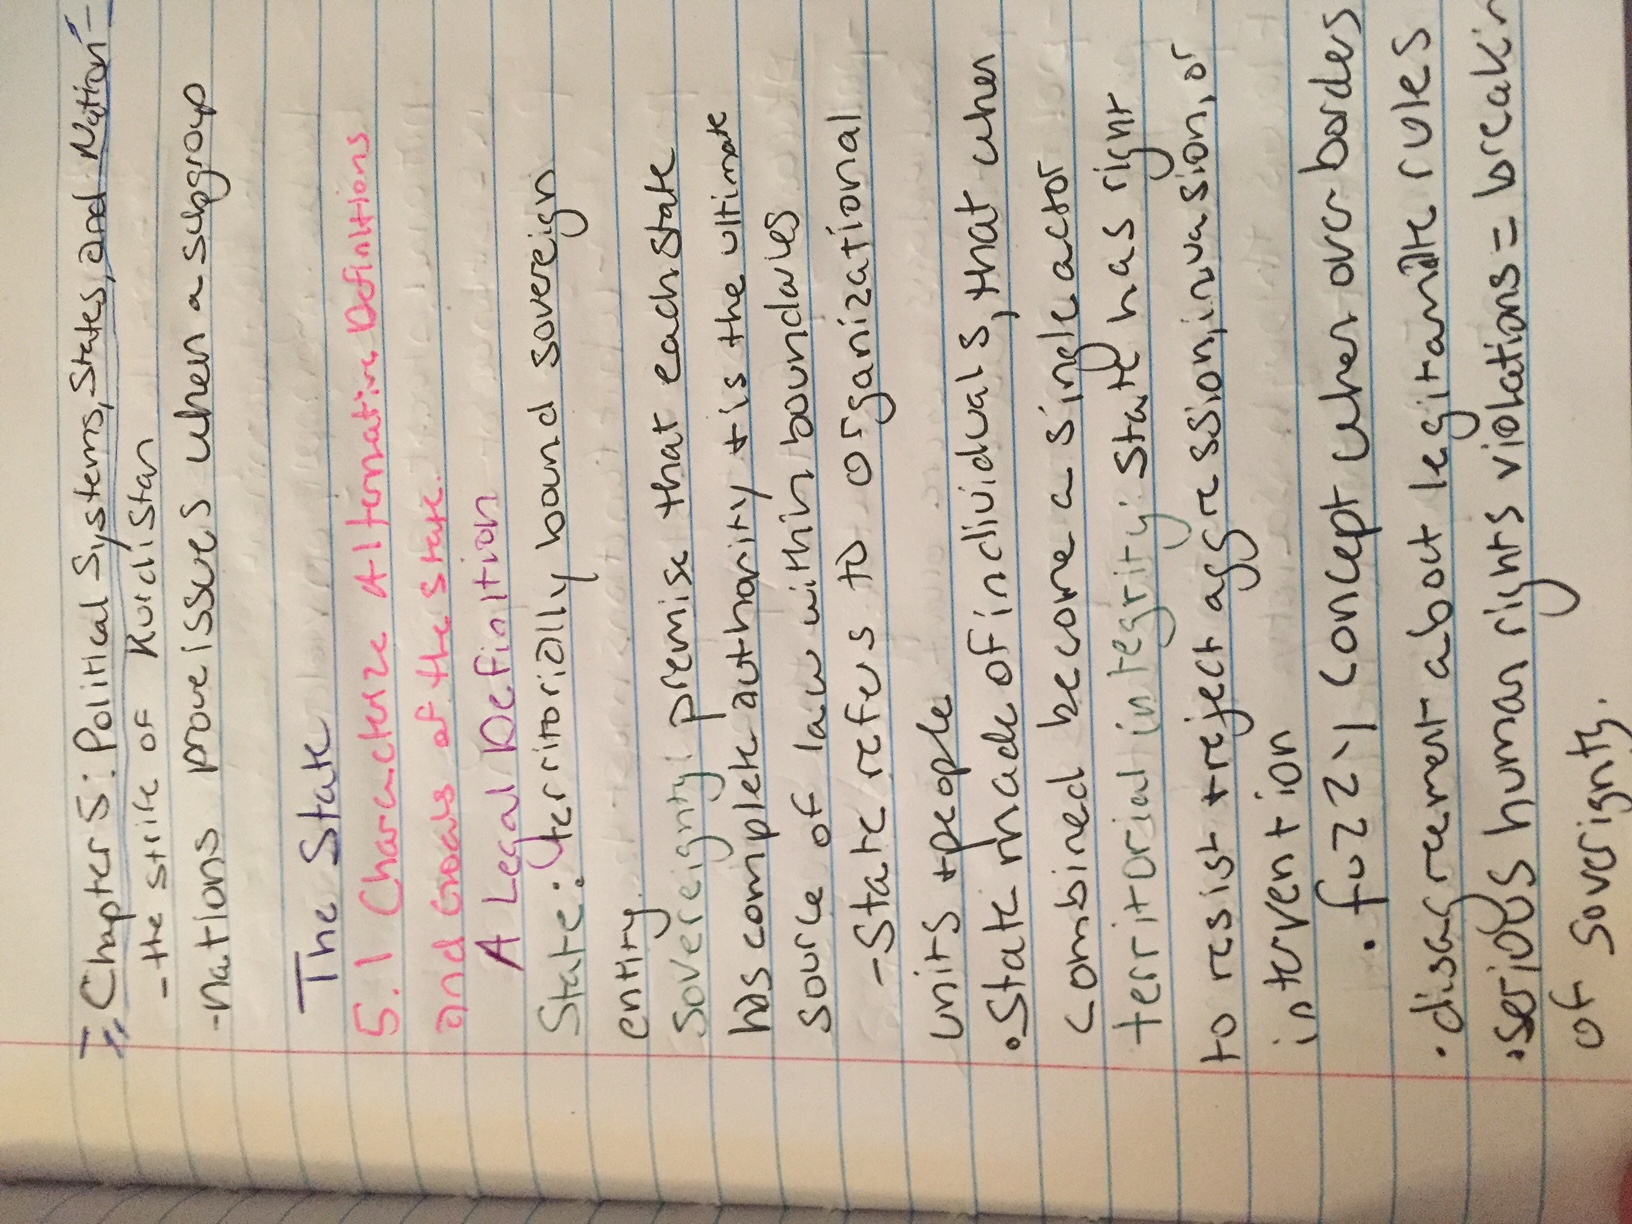 Chapter 5: Political Systems, States, and Nation-
- the strife of Kurdistan
- nations prove issues when a subgroup
The State
5.1 Characterize Alternative Definitions
and Goals of the State.
A Legal Definition
State: territorially bound sovereign
entity.
Sovereignty: premise that each state
has complete authority + is the ultimate
source of law within boundaries
- State refers to organizational
units + people
• State made of individuals, that when
combined become a single actor
territorial integrity: state has right
to resist + reject aggression, invasion, or
intervention
• fuzzy concept when over borders
• disagreement about legitamite rules
• serious human rights violations = breakin
of soverignty.